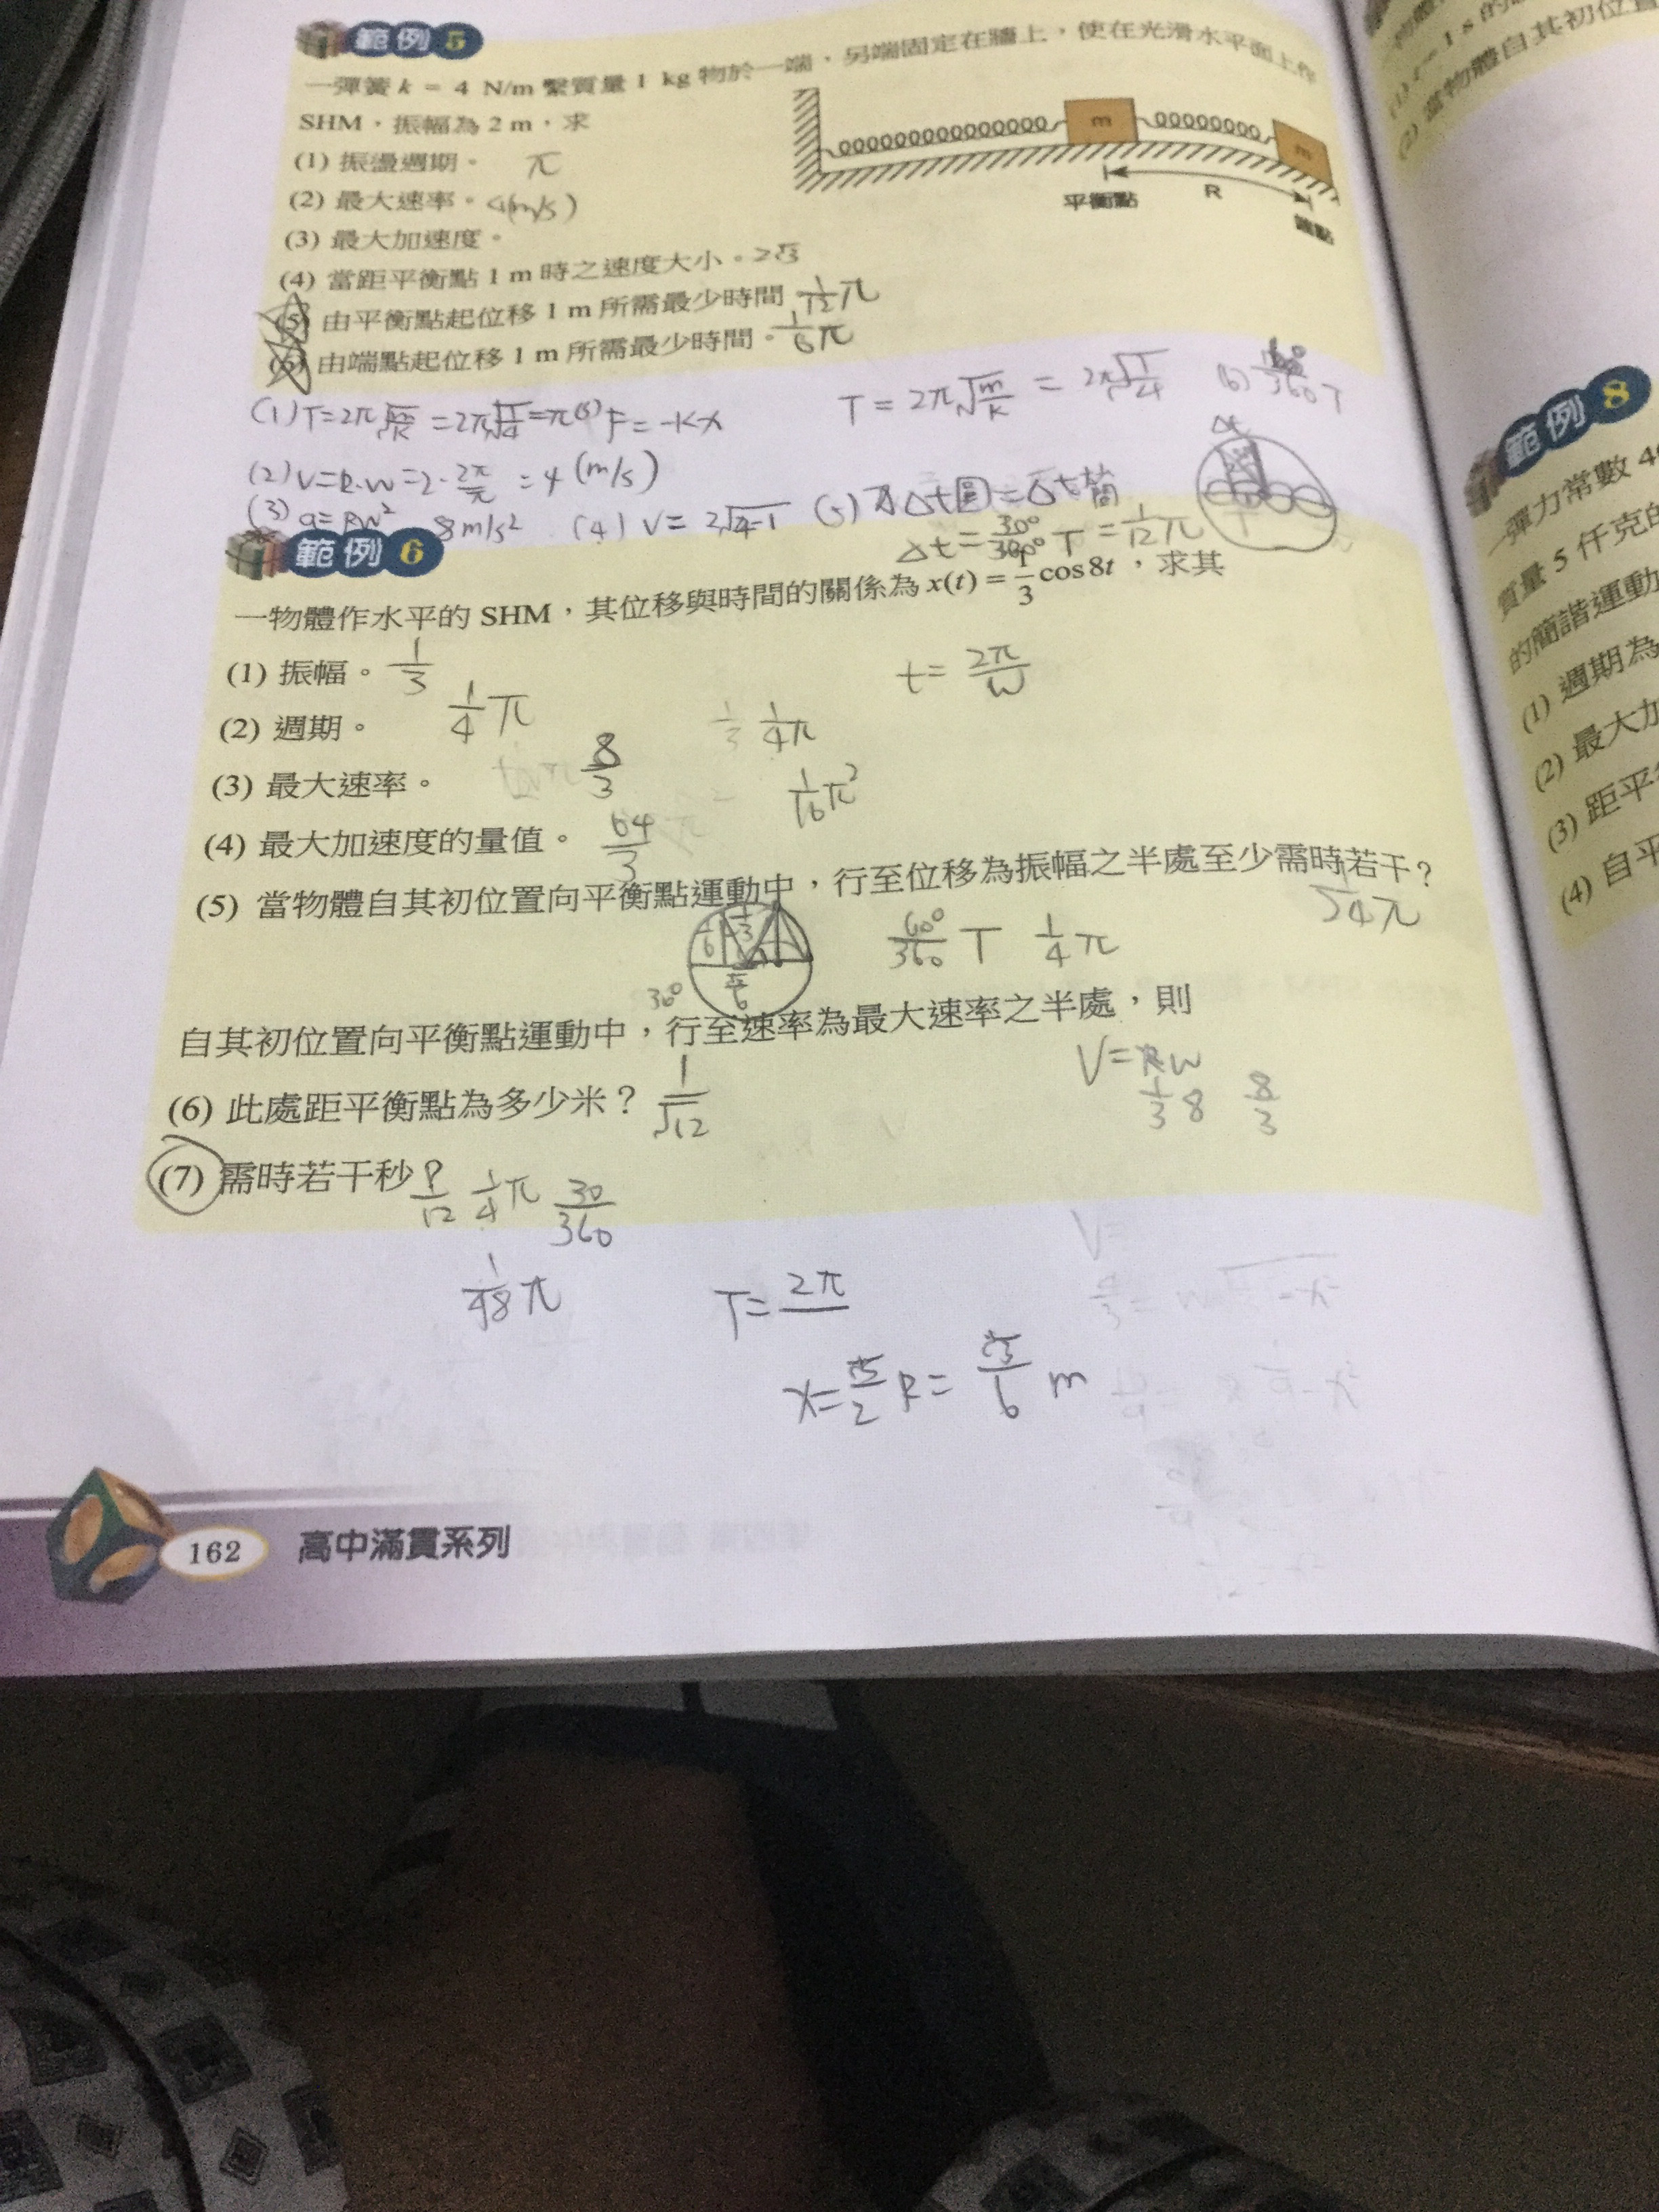 範例5
一彈簧 k = 4 N/m 繫質量 1 kg 物於一端，另端固定在牆上，使在光滑水平面上作
SHM，振幅為 2 m，求
(1) 振盪週期。 π
(2) 最大速率。 4(m/s)
(3) 最大加速度。
(4) 當距平衡點 1 m 時之速度大小。 2√3
(5) 由平衡點起位移 1 m 所需最少時間 1/12 π
(6) 由端點起位移 1 m 所需最少時間。 1/6 π
m
m
平衡點
R
端點
(1) T=2π√m/k =2π√1/4=π
F=-kx
T=2π√m/k = 2π√1/4
(2) V=R·w=2·2π/π =4 (m/s)
(3) a=Rw² 8m/s²
(4) V= 2√4-1
(5) Δt圓=Δt簡
Δt=30°/360° T = 1/12 π
範例6
一物體作水平的 SHM，其位移與時間的關係為 x(t) = 1/3 cos8t，求其
(1) 振幅。 1/3
t= 2π/w
(2) 週期。 1/4 π
1/3 1/4π
(3) 最大速率。 8/3
1/16 π²
(4) 最大加速度的量值。 64/3
(5) 當物體自其初位置向平衡點運動中，行至位移為振幅之半處至少需時若干？
1/24 π
60°/360 T 1/4 π
自其初位置向平衡點運動中，行至速率為最大速率之半處，則
V=Rw
1/3 8 8/3
(6) 此處距平衡點為多少米？ 1/√12
(7) 需時若干秒？
1/12 1/4 π 30/360
1/48 π
T= 2π
x=√3/2 R= √3/6 m
162
高中滿貫系列
範例8
一彈力常數 4
質量 5 仟克的
的簡諧運動
(1) 週期為
(2) 最大加
(3) 距平
(4) 自平